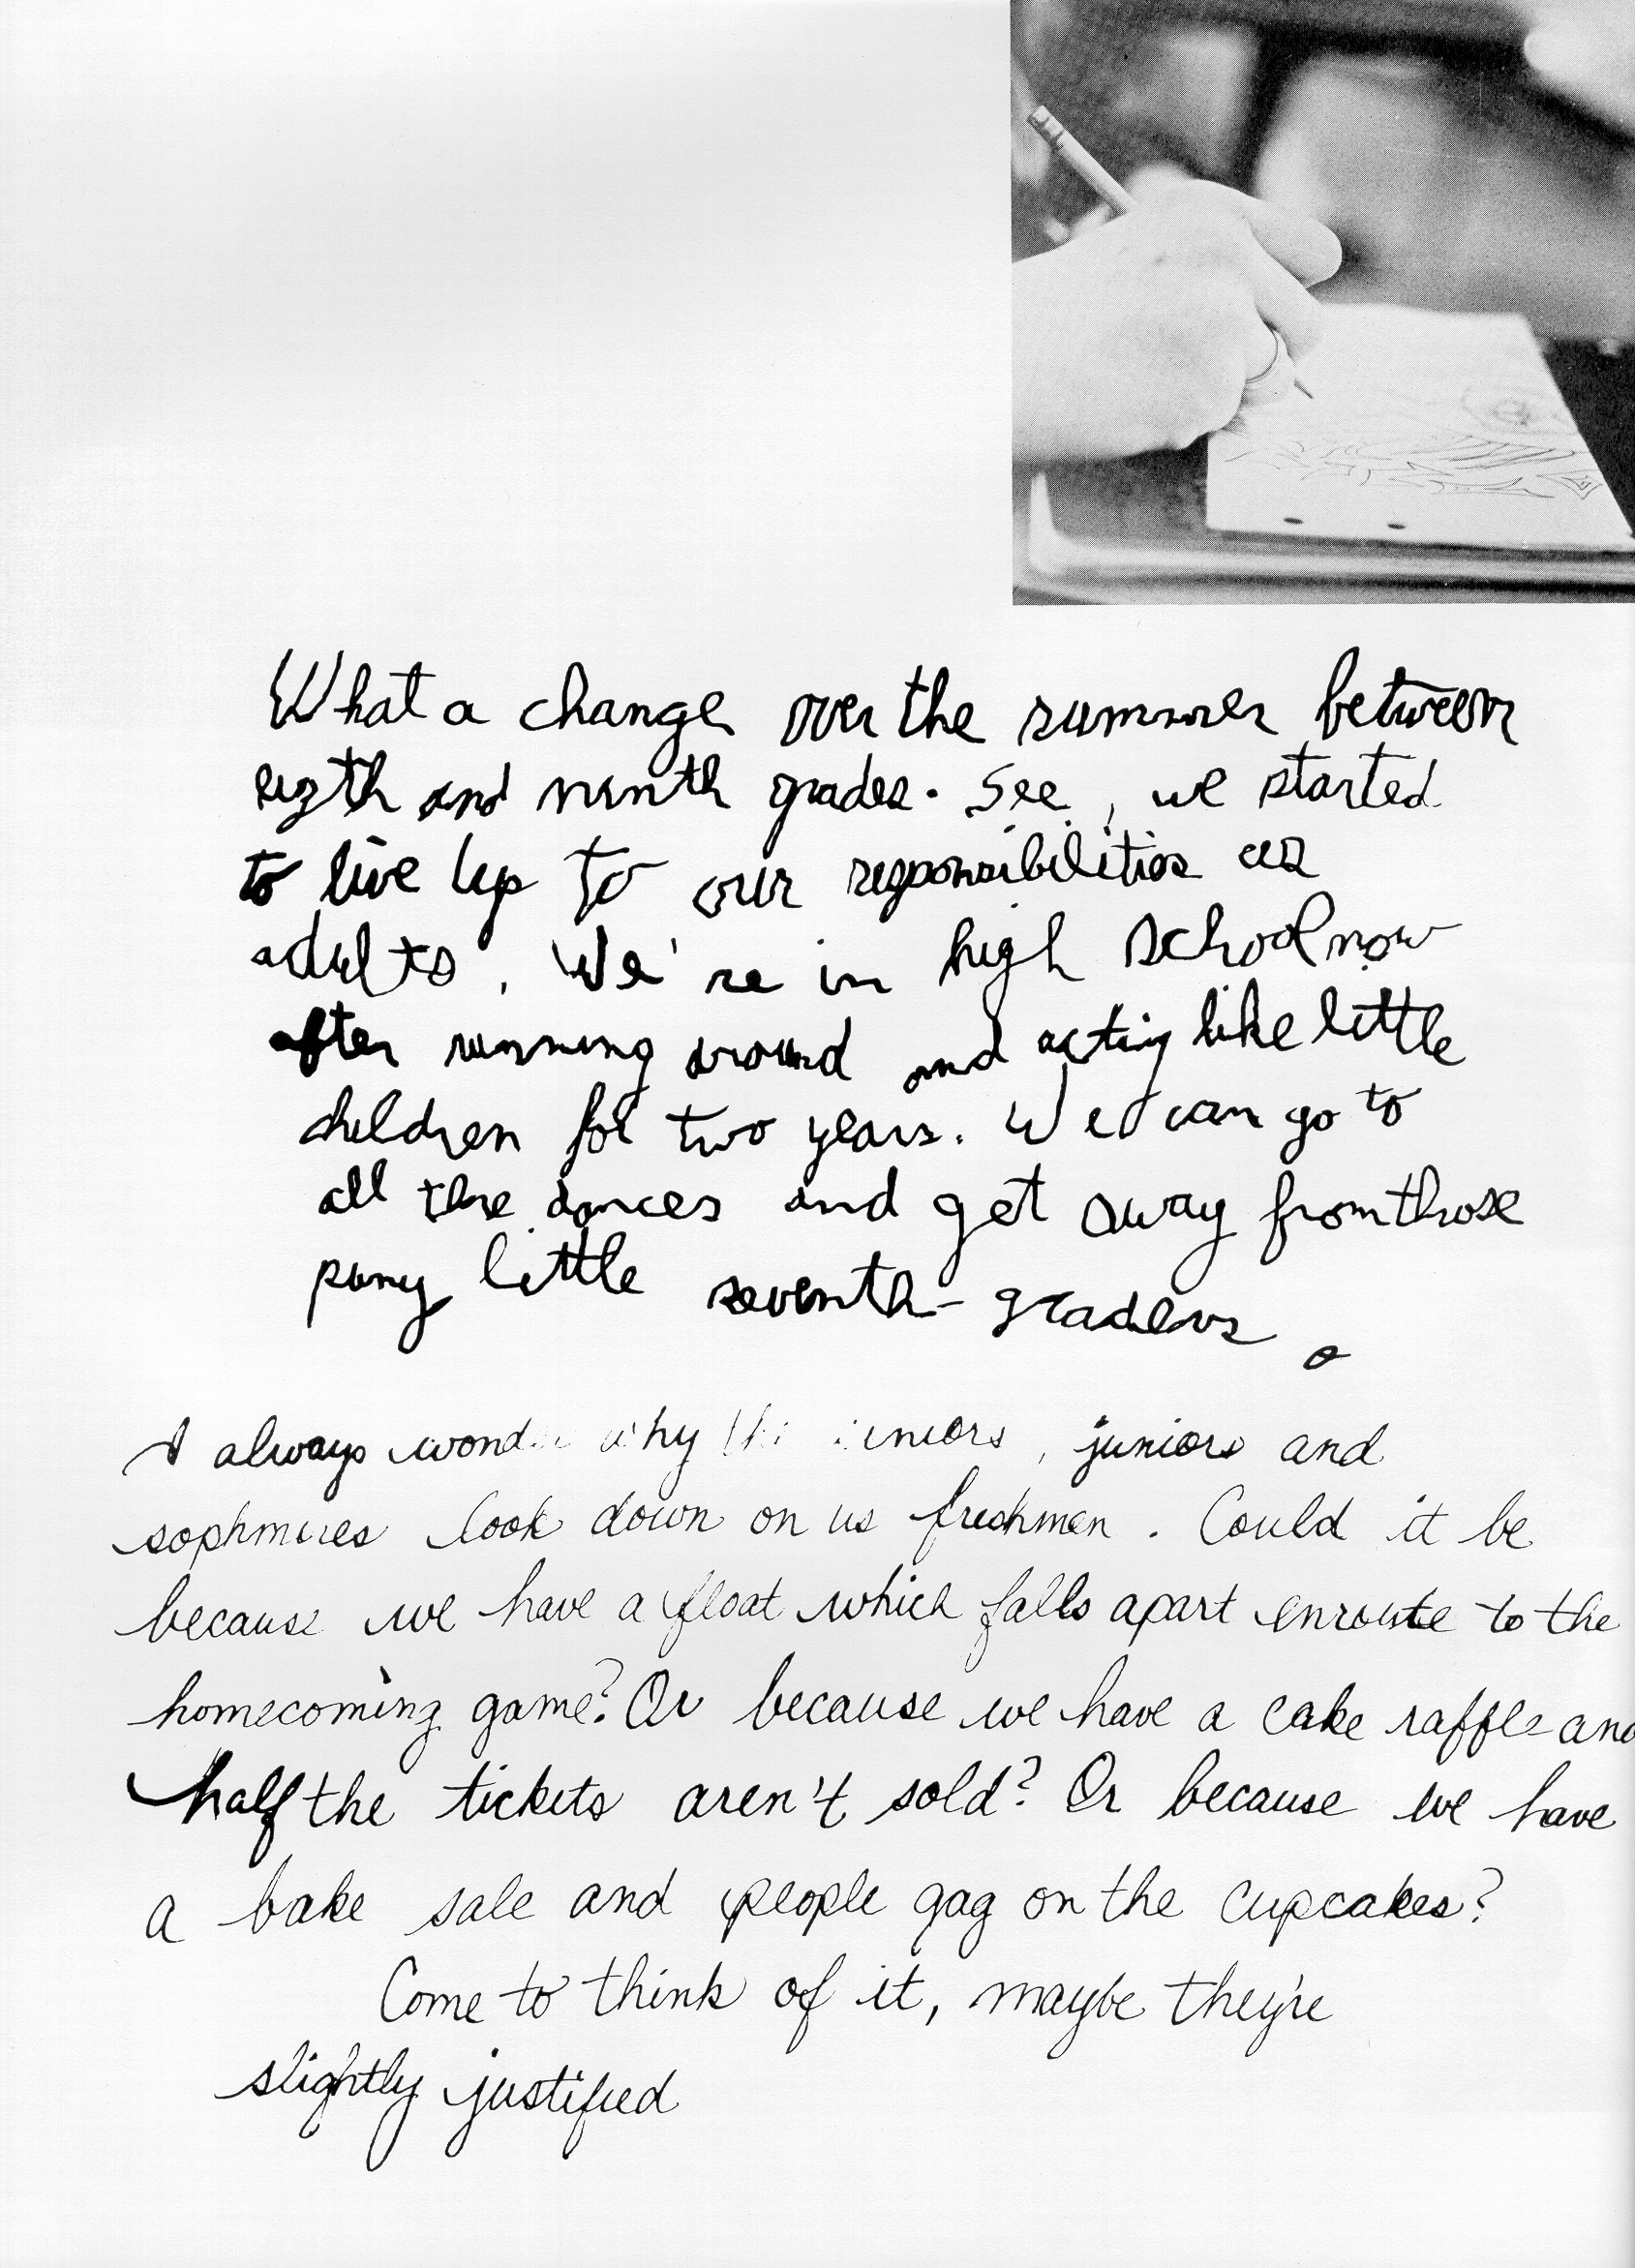 What a change over the summer between
eigth and ninth grades. See, we started
to live up to our responsibilities as
adults. We're in high school now
after running around and acting like little
children for two years. We can go to
all the dances and get away from those
puny little seventh-graders.
I always wonder why the seniors, juniors and
sophmores look down on us freshmen. Could it be
because we have a float which falls apart enroute to the
homecoming game? Or because we have a cake raffle and
half the tickets aren't sold? Or because we have
a bake sale and people gag on the cupcakes?
Come to think of it, maybe they're
slightly justified